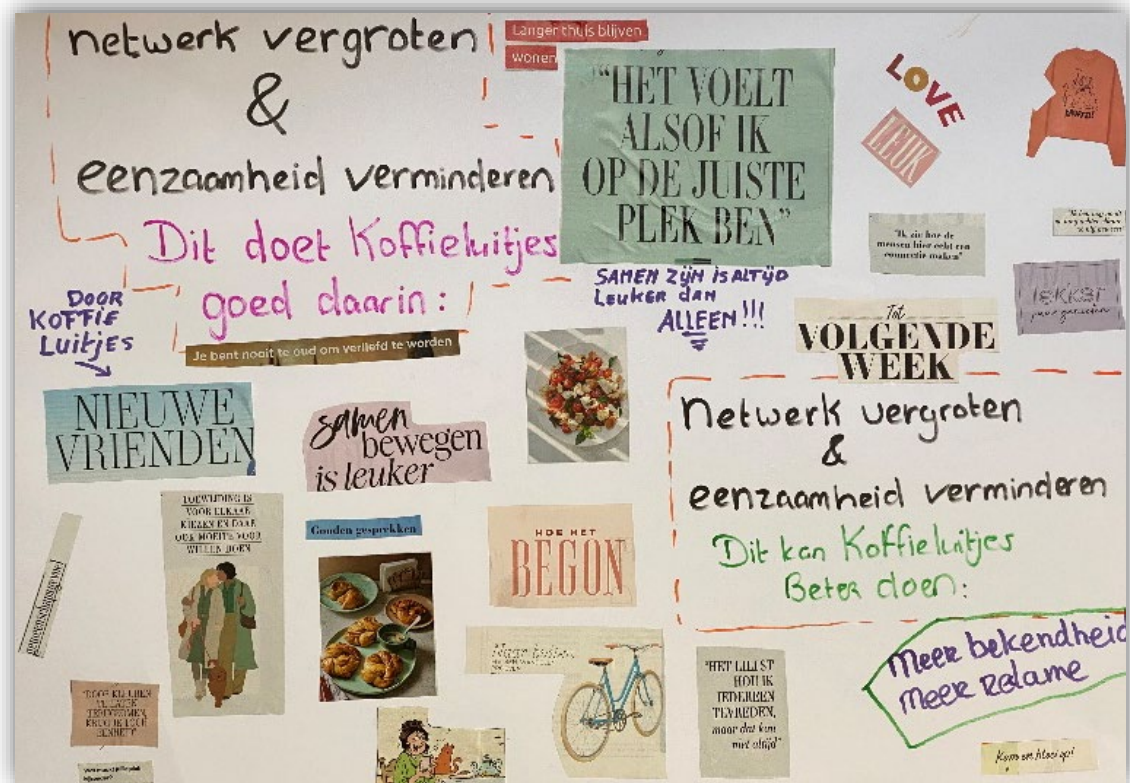 netwerk vergroten
&
eenzaamheid verminderen
Dit doet Koffieluitjes
goed daarin:
Langer thuis blijven
wonen
"HET VOELT
ALSOF IK
OP DE JUISTE
PLEK BEN"
LOVE
LEUK
"Ik zie hoe de
mensen hier echt een
connectie maken"
lekker
puur genieten
SAMEN ZIJN IS ALTIJD
LEUKER DAN
ALLEEN!!!
Tot
VOLGENDE
WEEK
DOOR
KOFFIE
Luitjes
Je bent nooit te oud om verliefd te worden
NIEUWE
VRIENDEN
samen
bewegen
is leuker
TOEWIJDING IS
VOOR ELKAAR
KIEZEN EN DAAR
OOK MOEITE VOOR
WILLEN DOEN
Gouden gesprekken
HOE HET
BEGON
Netwerk vergroten
&
eenzaamheid verminderen
Dit kan Koffieluitjes
Beter doen:
Meer bekendheid
Meer reclame
"HET LIEFST
HOU IK
IEDEREEN
TEVREDEN,
maar dat kan
niet altijd"
Kom en bloei op!